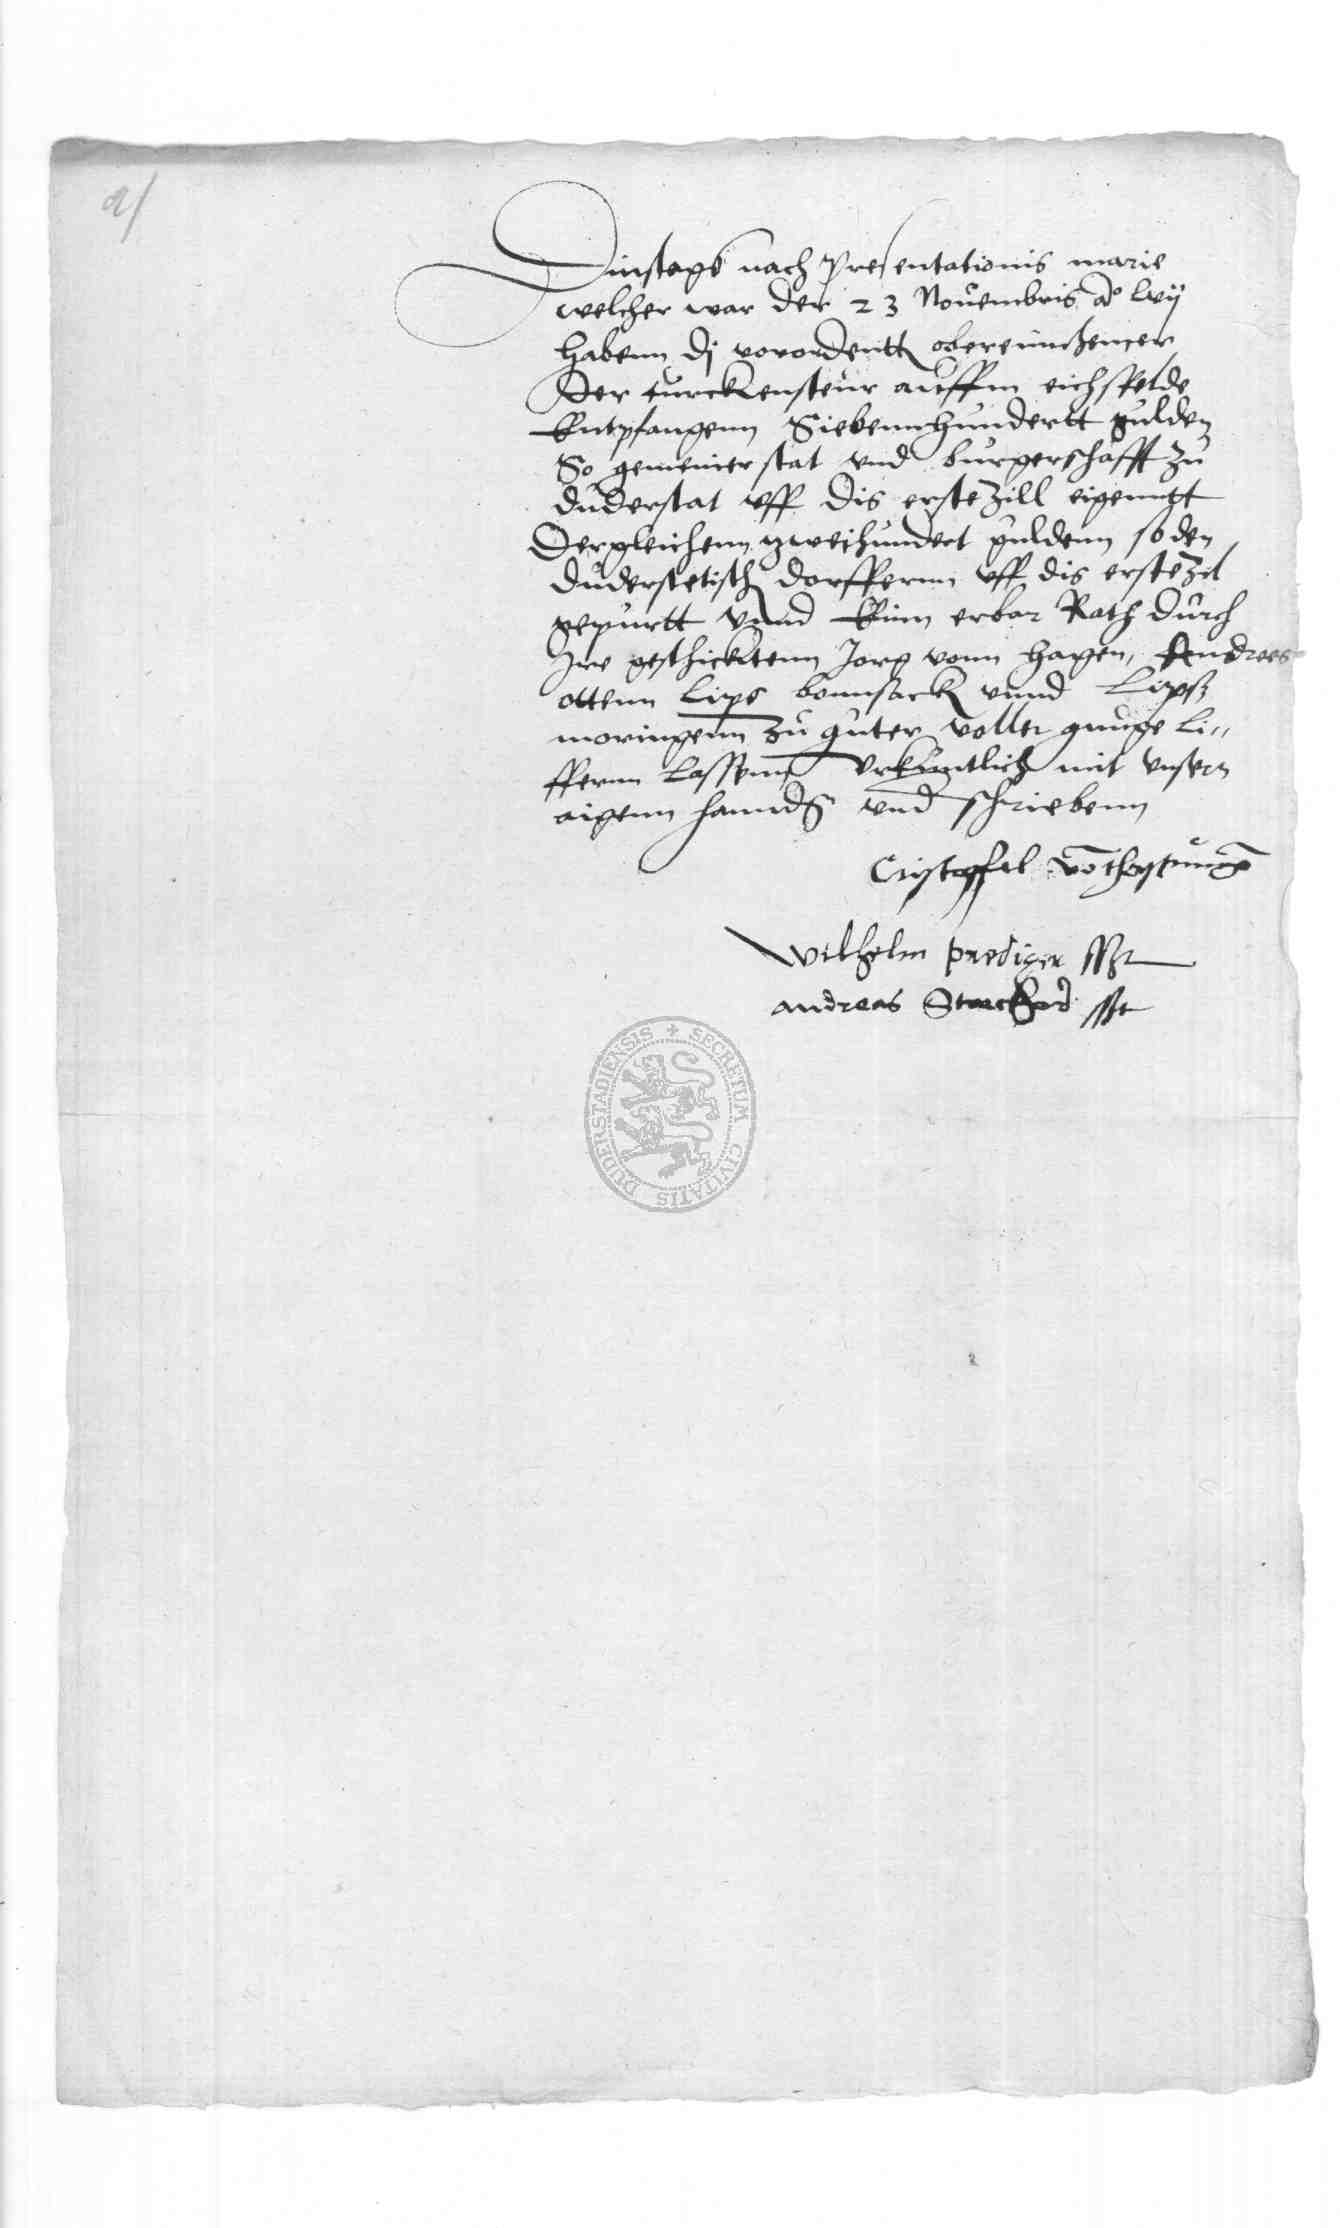 Dinstags nach Presentationis marie
welcher war der 23 Nouembris ao lvij
habenn dj vorordentt obereinnhemer
der turckensteur auffm eichsfelde
Entpfangenn Siebennhundertt gulden
So gemeiner stat vnd burgerschafft zu
duderstat vff dis erste Zill eigenntt
Dergleichenn zweihundert guldenn so den
duderstetisch dorffernn vff dis erste Zil
gepurtt vnnd Einn erbar Rath durch
Jre geschicktenn Jorg vonn hagen, Andreas
ottenn Lips bonnsack vnnd Lips
moringenn zu guter voller gnuge li"
ffernn lassenn Vrkuntlich mit vnsern
aigenn hannds vnd schriebenn
Cristoffel
Wilhelm prediger sst
andreas sst
DUDERSTADIENSIS + SECRETUM CIVITATIS